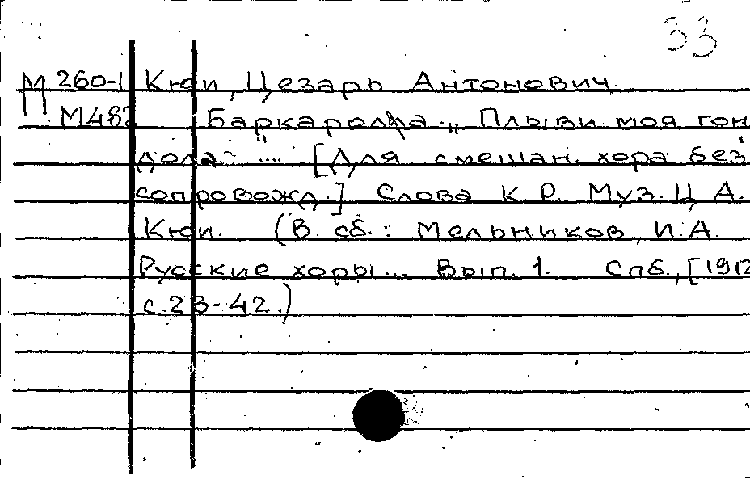 33
М 260-1 Кюи, Цезарь Антонович
М482 Баркаролла. „Плыви моя гон
дола" ... [Для смешан. хора без
сопровожд.] Слова К.Р. Муз. Ц.А.
Кюи. (В сб.: Мельников, И.А.
Русские хоры... Вып. 1. Спб., [1912
с. 23-42.)